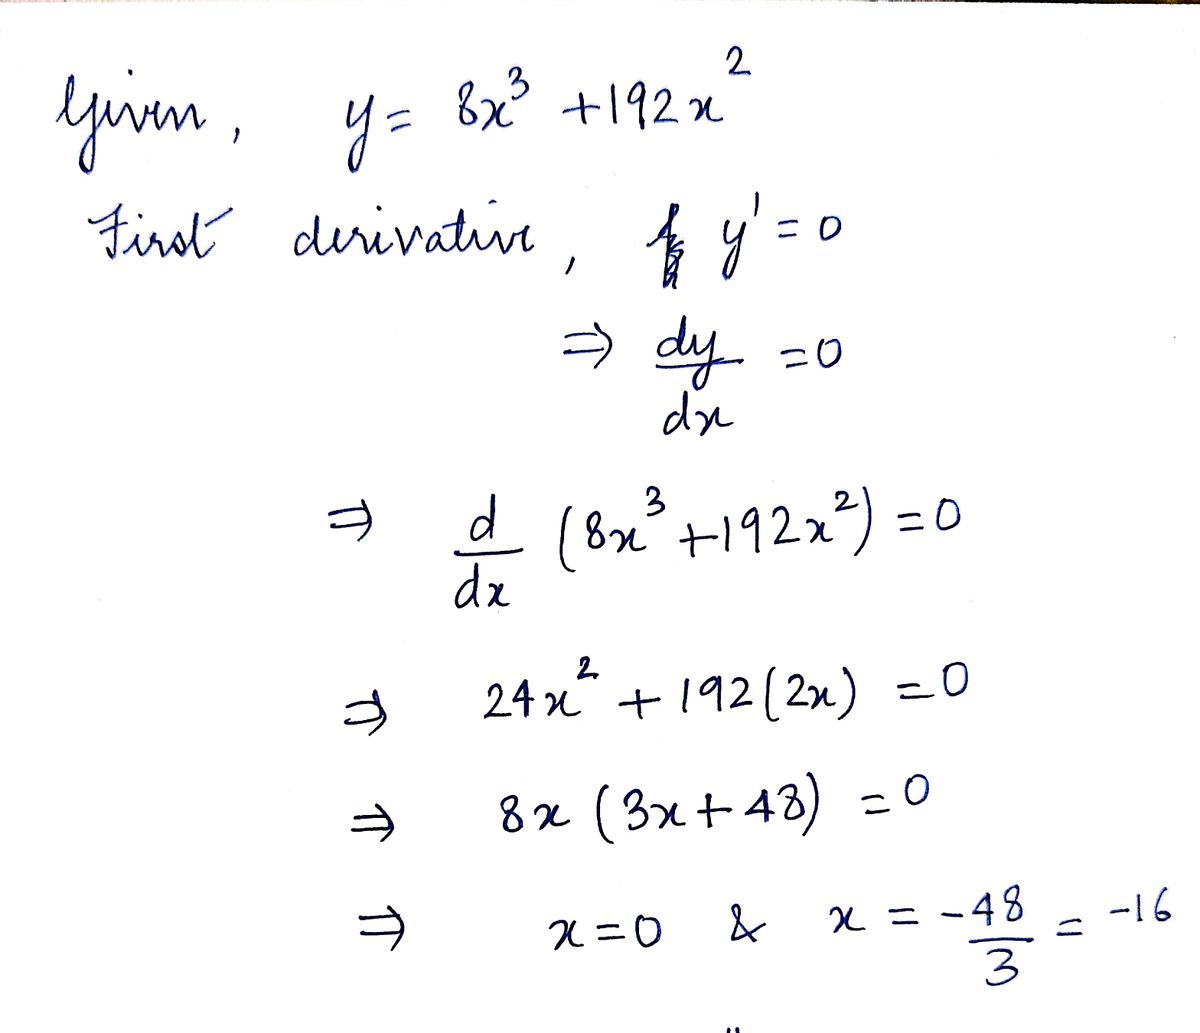 Given, y = 8x³ + 192x²
First derivative, y' = 0
⇒ dy/dx = 0
⇒ d/dx (8x³ + 192x²) = 0
⇒ 24x² + 192(2x) = 0
⇒ 8x (3x + 48) = 0
⇒ x = 0 & x = -48/3 = -16